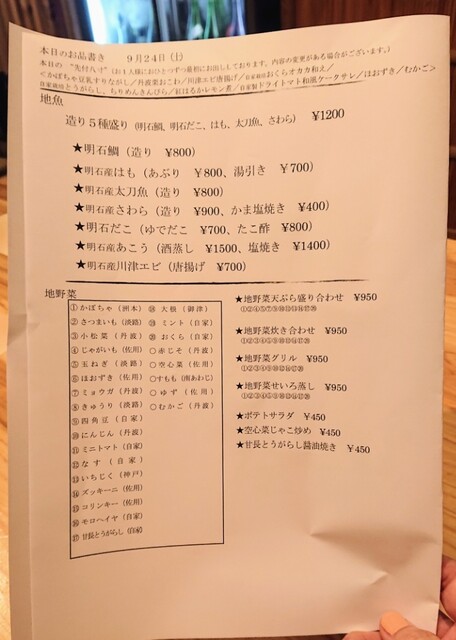 本日のお品書き　9月24日(土)
本日の "先付八寸"(お1人様においとつずつ最初にお出ししております。内容の変更がある場合がございます。)
<かぼちゃ豆乳すりながし／丹波栗おこわ／川津エビ唐揚げ／自家栽培おくらオカカ和え／
自家栽培とうがらし、ちりめんきんぴら／紅はるかレモン煮／自家製ドライトマト和風ケークサレ／ほおずき／むかご>
地魚
造り５種盛り (明石鯛、明石だこ、はも、太刀魚、さわら)　¥1200
★明石鯛（造り　¥800）
★明石産はも（あぶり　¥800、湯引き　¥700）
★明石産太刀魚（造り　¥800）
★明石産さわら（造り　¥900、かま塩焼き　¥400）
★明石だこ（ゆでだこ　¥700、たこ酢　¥800）
★明石産あこう（酒蒸し　¥1500、塩焼き　¥1400）
★明石産川津エビ（唐揚げ　¥700）
地野菜
①かぼちゃ（洲本）
②さつまいも（淡路）
③小松菜（丹波）
④じゃがいも（佐用）
⑤玉ねぎ（淡路）
⑥ほおずき（佐用）
⑦ミョウガ（丹波）
⑧きゅうり（淡路）
⑨四角豆（自家）
⑩にんじん（丹波）
⑪ミニトマト（自家）
⑫なす（自家）
⑬いちじく（神戸）
⑭ズッキーニ（佐用）
⑮コリンキー（佐用）
⑯モロヘイヤ（自家）
⑰甘長とうがらし（自家）
⑱大根（御津）
⑲ミント（自家）
⑳おくら（自家）
○赤じそ（丹波）
○空心菜（佐用）
○すもも（南あわじ）
○ゆず（佐用）
○むかご（丹波）
★地野菜天ぷら盛り合わせ　¥950
★地野菜炊き合わせ　¥950
★地野菜グリル　¥950
★地野菜せいろ蒸し　¥950
★ポテトサラダ　¥450
★空心菜じゃこ炒め　¥450
★甘長とうがらし醤油焼き　¥450